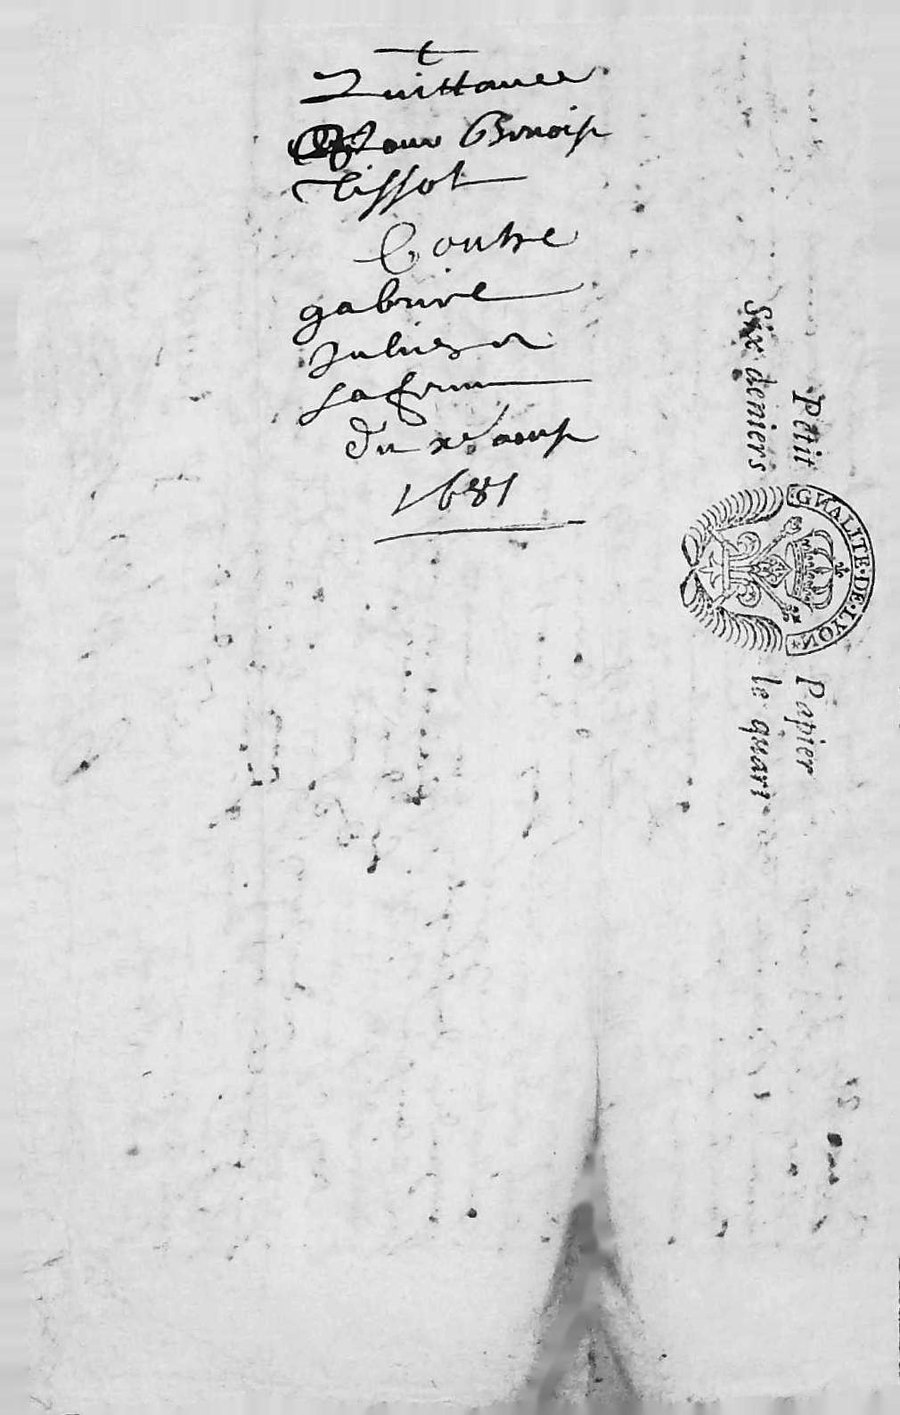 Quittance
pour Benoist
Tissot
Contre
gabriel
Jullien et
sa femme
du xe aoust
1681
Petit Papier
Six deniers le quart
GNALITE·DE·LYON